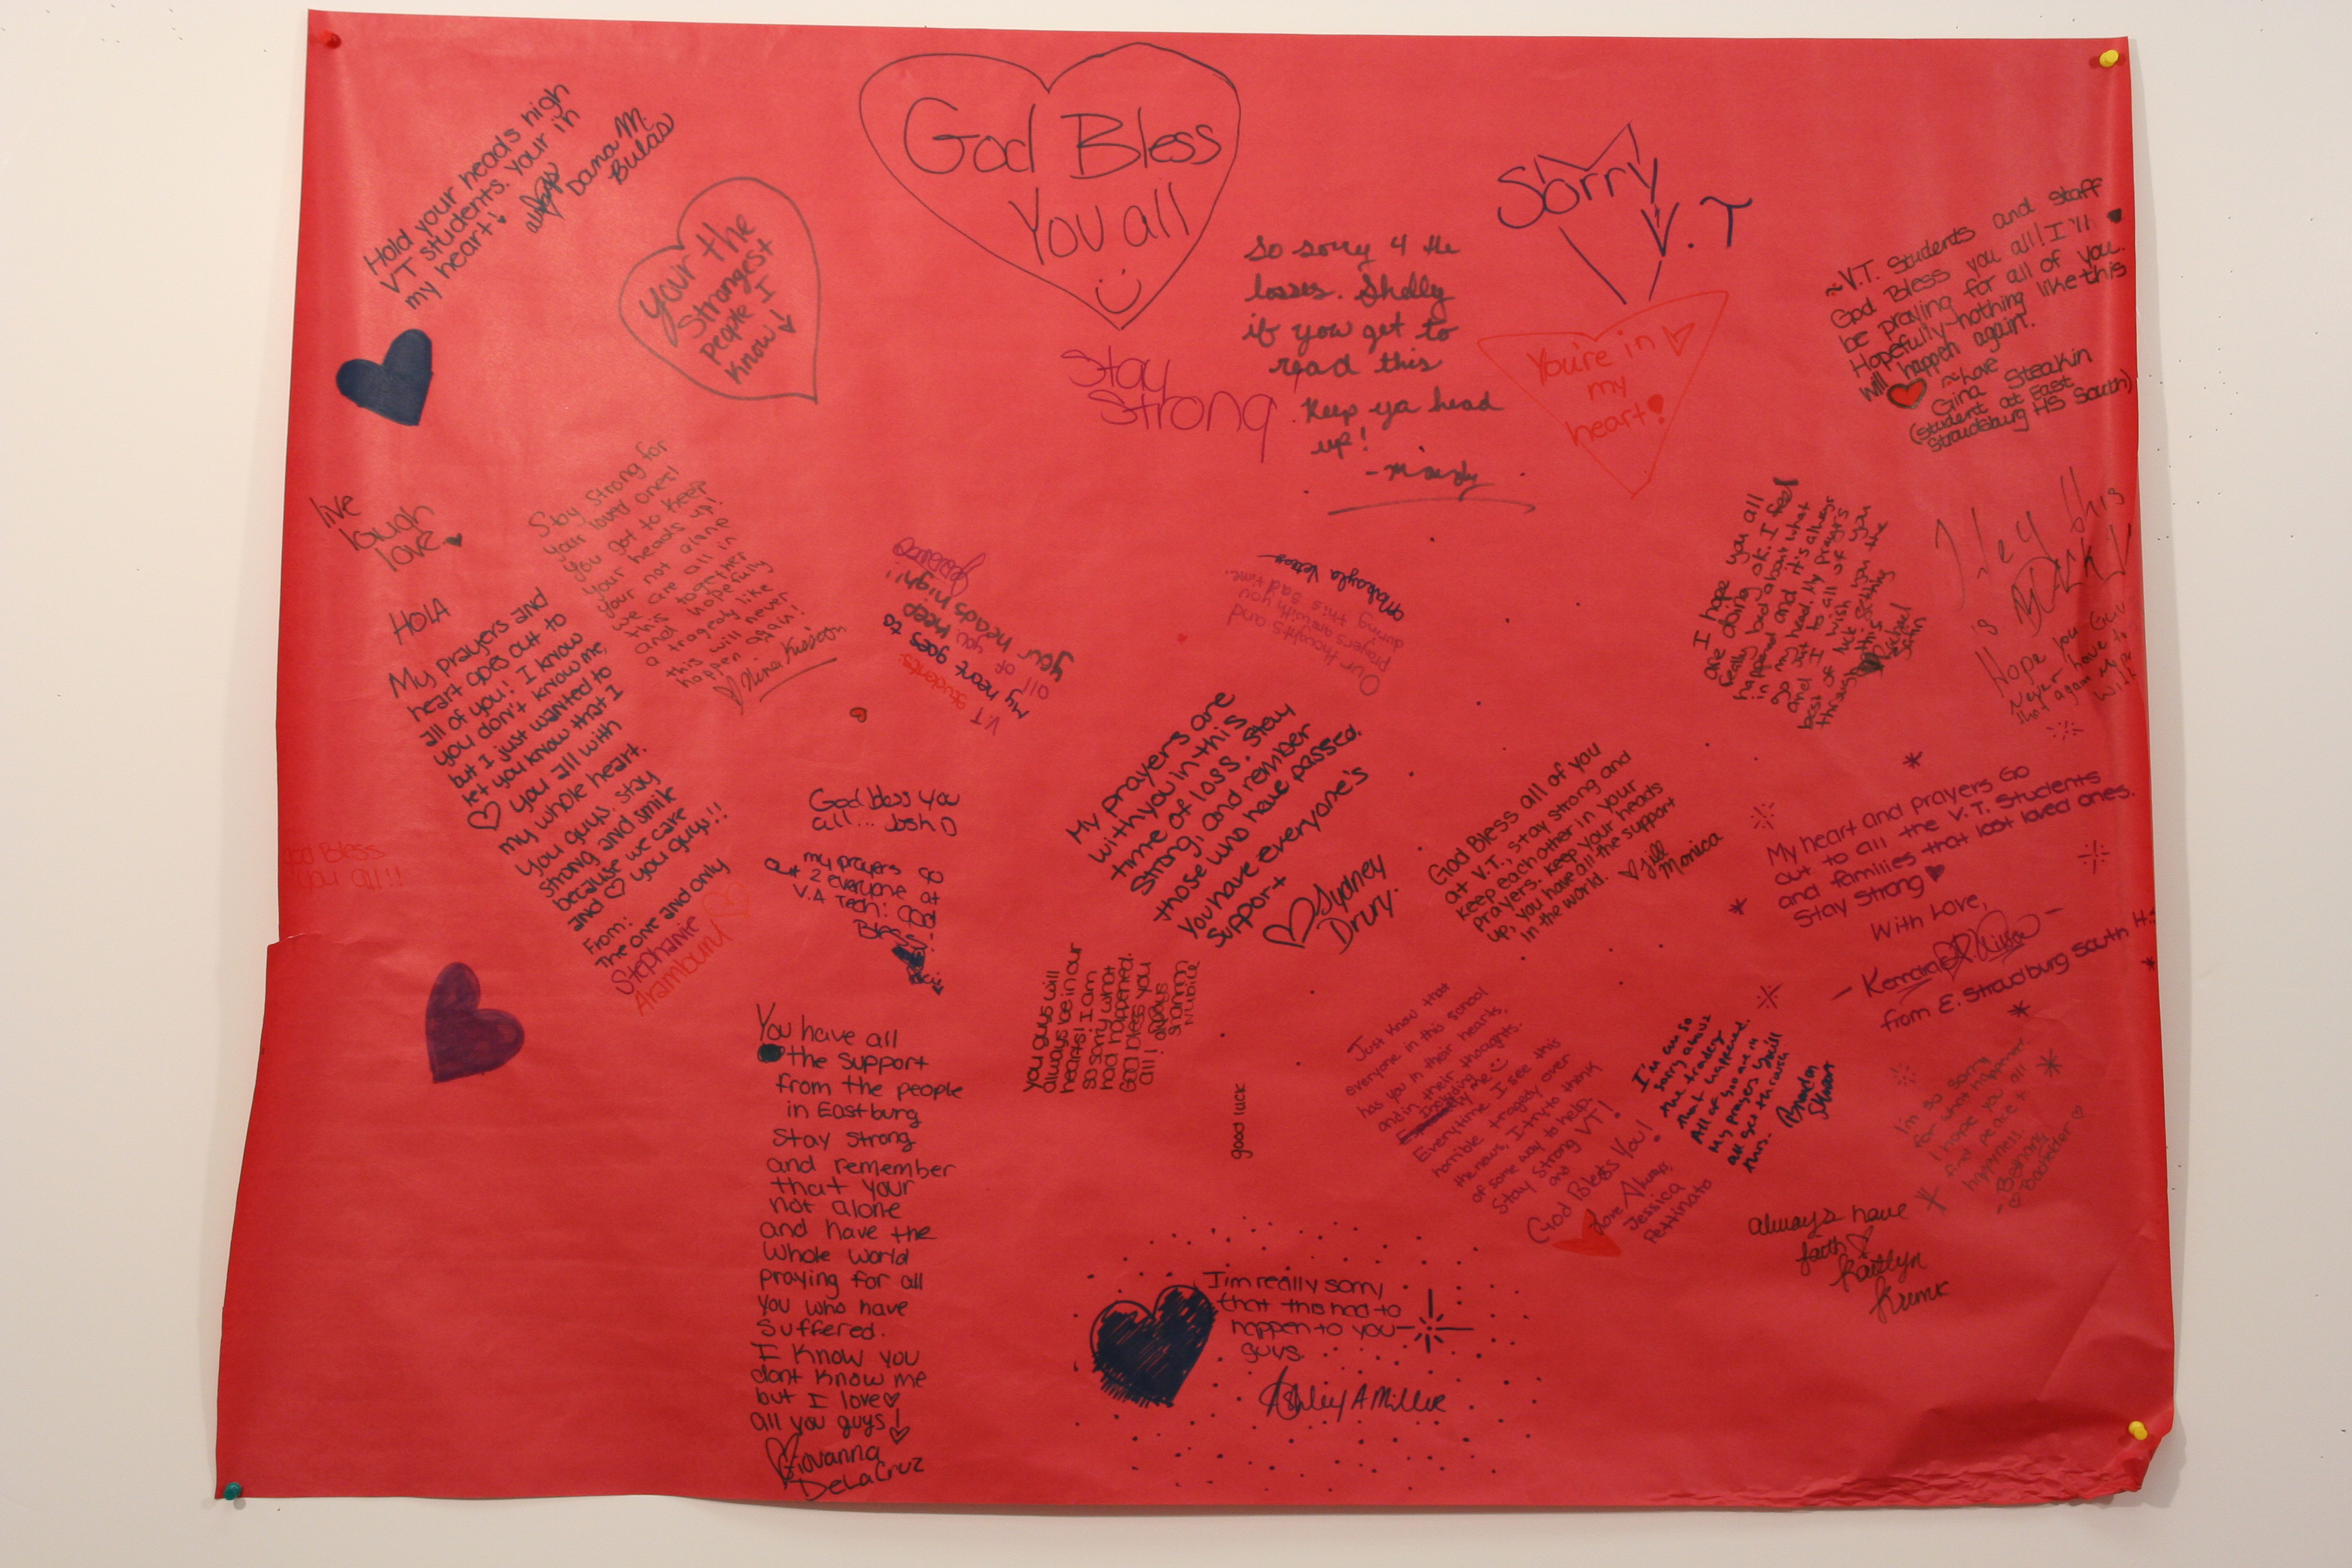 Hold your heads high
VT students. your in
my heart!
always
Dana M.
Bulas
your the
Strongest
people I
Know!
God Bless
You all
Stay
Strong
So sorry 4 the
losses. Shelly
if you get to
read this
Keep ya head
up!
- Mandy
Sorry
V.T
You're in
my
heart!
~V.T. Students and Staff
God Bless you all! I'll
be praying for all of you.
Hopefully nothing like this
will happen again.
~Love
Gina Steakin
(student at East
Stroudsburg HS South)
live
laugh
love
Stay Strong for
your loved ones!
You got to keep
your heads up!
your not alone
we are all in
this together
and hopefully
a tragedy like
this will never
happen again!!
Nina Kisson
HOLA
My prayers and
heart goes out to
all of you! I know
you don't know me,
but I just wanted to
let you know that I
♡ you all with
my whole heart.
You guys, stay
strong and smile
because we care
and ♡ you guys!!
From:
The one and only
Stephanie
Aramburu
God Bless
you all!!
V.T
students
My heart goes to
all of you keep
your heads high!!
Our thoughts and
prayers are with you
during this sad time.
Makayla
I hope you all
are doing ok. I feel
really bad about what
happened and it's always
in my head. My prayers
go out to all of you
and I wish you the
best of luck getting
through this
Michael
Hey this
is
Hope you Guys
Never have to
that again
With
God bless you
all... Josh D
my prayers go
out 2 everyone at
V.A Tech! God
Bless!
My prayers are
with you in this
time of loss. Stay
Strong, and remember
those who have passed.
You have everyone's
support
♡ Sydney
Drury.
God Bless all of you
at V.T., stay strong and
keep each other in your
prayers. Keep your heads
up, you have all the support
in the world. ♡ Jill
Monica
My heart and prayers Go
out to all the V.T. Students
and families that lost loved ones.
Stay Strong ♥
With Love,
- Kendra Kisson -
from E. Stroudburg South H.S
You guys will
always be in our
hearts! I am
so sorry what
had happened.
God bless you
all! always
Shannon
good luck
You have all
the support
from the people
in Eastburg
Stay strong
and remember
that your
not alone
and have the
whole world
praying for all
you who have
suffered.
I know you
dont know me
but I love♡
all you guys!
Giovanna
DeLaCruz
Just know that
everyone in this school
has you in their hearts,
and in their thoughts.
Including Me ☺
Everytime I see this
horrible tragedy over
the news, I try to think
of some way to help.
Stay Strong VT!
and
God Bless You!
Love Always,
Jessica
Pettinato
I'm so
sorry about
the tradegy
that happend.
All of you are in
My prayers you'll
all get through
this.
Brandon
I'm so sorry
for what happened
I hope you all
find peace +
happiness.
Bethany
♡ Bachelder ♡
always have
faith
Kaitlyn
I'm really sorry
that this had to
happen to you
guys.
Ashley A Miller